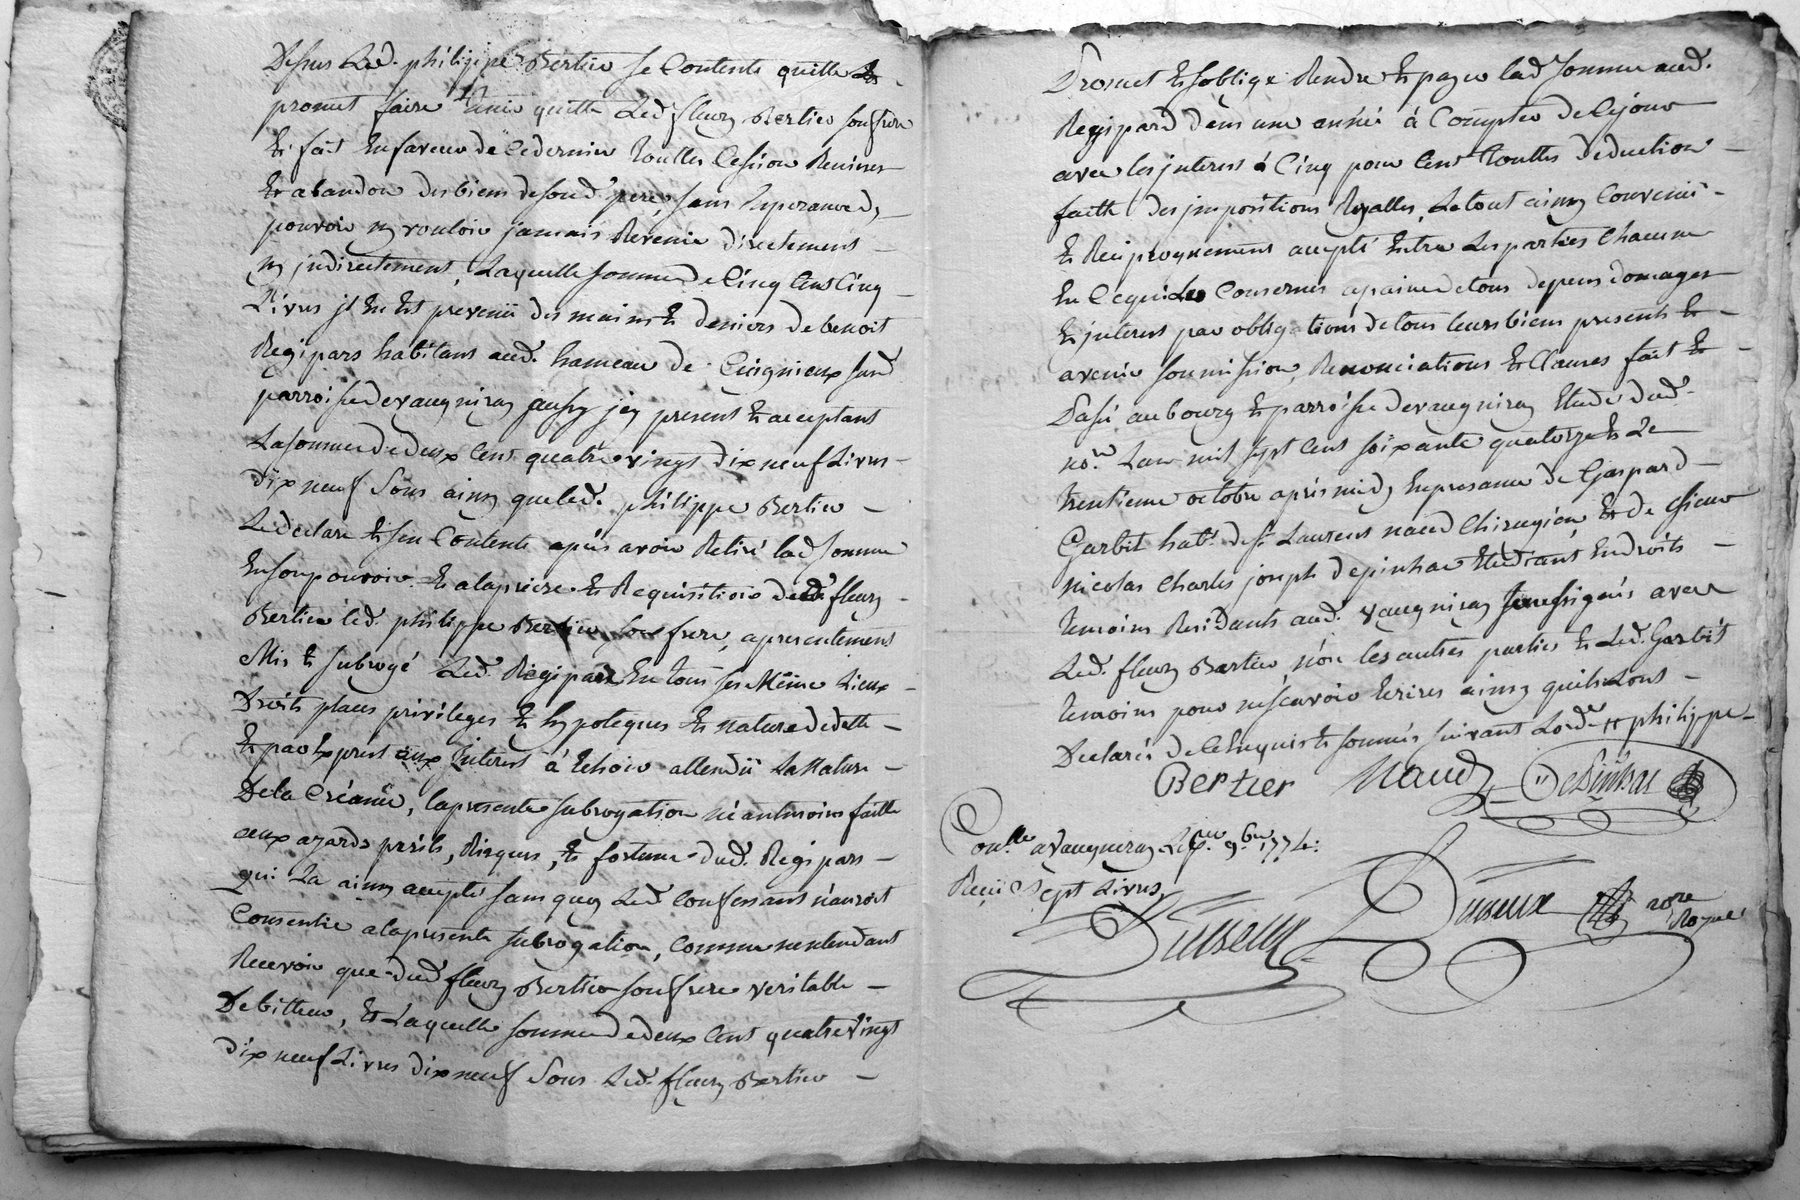 Desus Led. philippe Bertier se Contente quitte Et
promet faire tenir quitte Led fleury Bertier son frere
Et fait En faveur de Ce dernier touttes Cession Remises
Et abandon des biens de feu d. pere, sans Esperance dy
pouvoir ny vouloir jamais Revenir directement
ny jndirectement, Laquelle somme de Cinq Cent Cinq
Livres jl En Est prevenü des mains Et deniers de benoit
Regipars habitant aud. hameau de Cuignieux sur d
parroisse de vaugneray aussy jcy present Et acceptant
La somme de deux Cent quatre vingt dix neuf Livres
dix neuf Sous ainsy que led. philippe Bertier
Le declare Et sen Contente apres avoir Retiré lad somme
En son pouvoir. Et a la priere Et Requisition dud. fleury
Bertier led. philippe Bertier son frere, a presentement
Mis Et subrogé Led. Regipard En tous ses Même Lieux
Droits places privileges Et hypoteques Et nature de dette
Et par Exprest aux Jnterest à Echoir attendü La Nature
De la Créance, la presente subrogation néantmoins faitte
aux azards perils, Risques, Et fortune dud. Regipars
qui La ainsy accepté sans quoy Led. Confessant n'auroit
Consentie a la presente subrogation, Comme nentendant
Recevoir que dud fleury Bertier son frere veritable
Debitteur, Et Laquelle somme de deux Cent quatre vingt
dix neuf Livres dix neuf Sous Led. fleury Bertier
Promet Et soblige Rendre Et payer lad somme aud.
Regipard dans une année à Compter de Ce jour
avec les jnterest à Cinq pour Cent touttes deduction
faitte des jmpositions Royalles, Le tout ainsy Convenü
Et Reciproquement accepté Entre Les parties Chacune
En Ce qui Les Concernes a paine de tous depens domages
Et jnterest par obligations de tous leurs biens presents Et
avenir soumission, Renonciations Et Clauses fait Et
Passé au bourg Et parroisse de vaugneray Etude dud.
no.re Lan mil sept Cent soixante quatorze Et Le
trentieme octobre après midy En presance de Gaspard
Garbit hab.t de St Laurens naud Chirugien, Et de Sieur
nicolas Charles joseph depinhac Etudiant En droits
temoins Residants aud. vaugneray soussignés avec
Led. fleury Bertier non les autres parties Et Led. Garbit
temoins pour ne scavoir Ecrires ainsy quils Lont
Declarés de Ce Enquis Et sommés suivant Lord.ce ++ philippe
Bertier Naud Depinhac
Con.lle a Vaugneray Le p.er 9bre 1774:
Reçü Sept Livres
Duseux Duseux nore
Royal